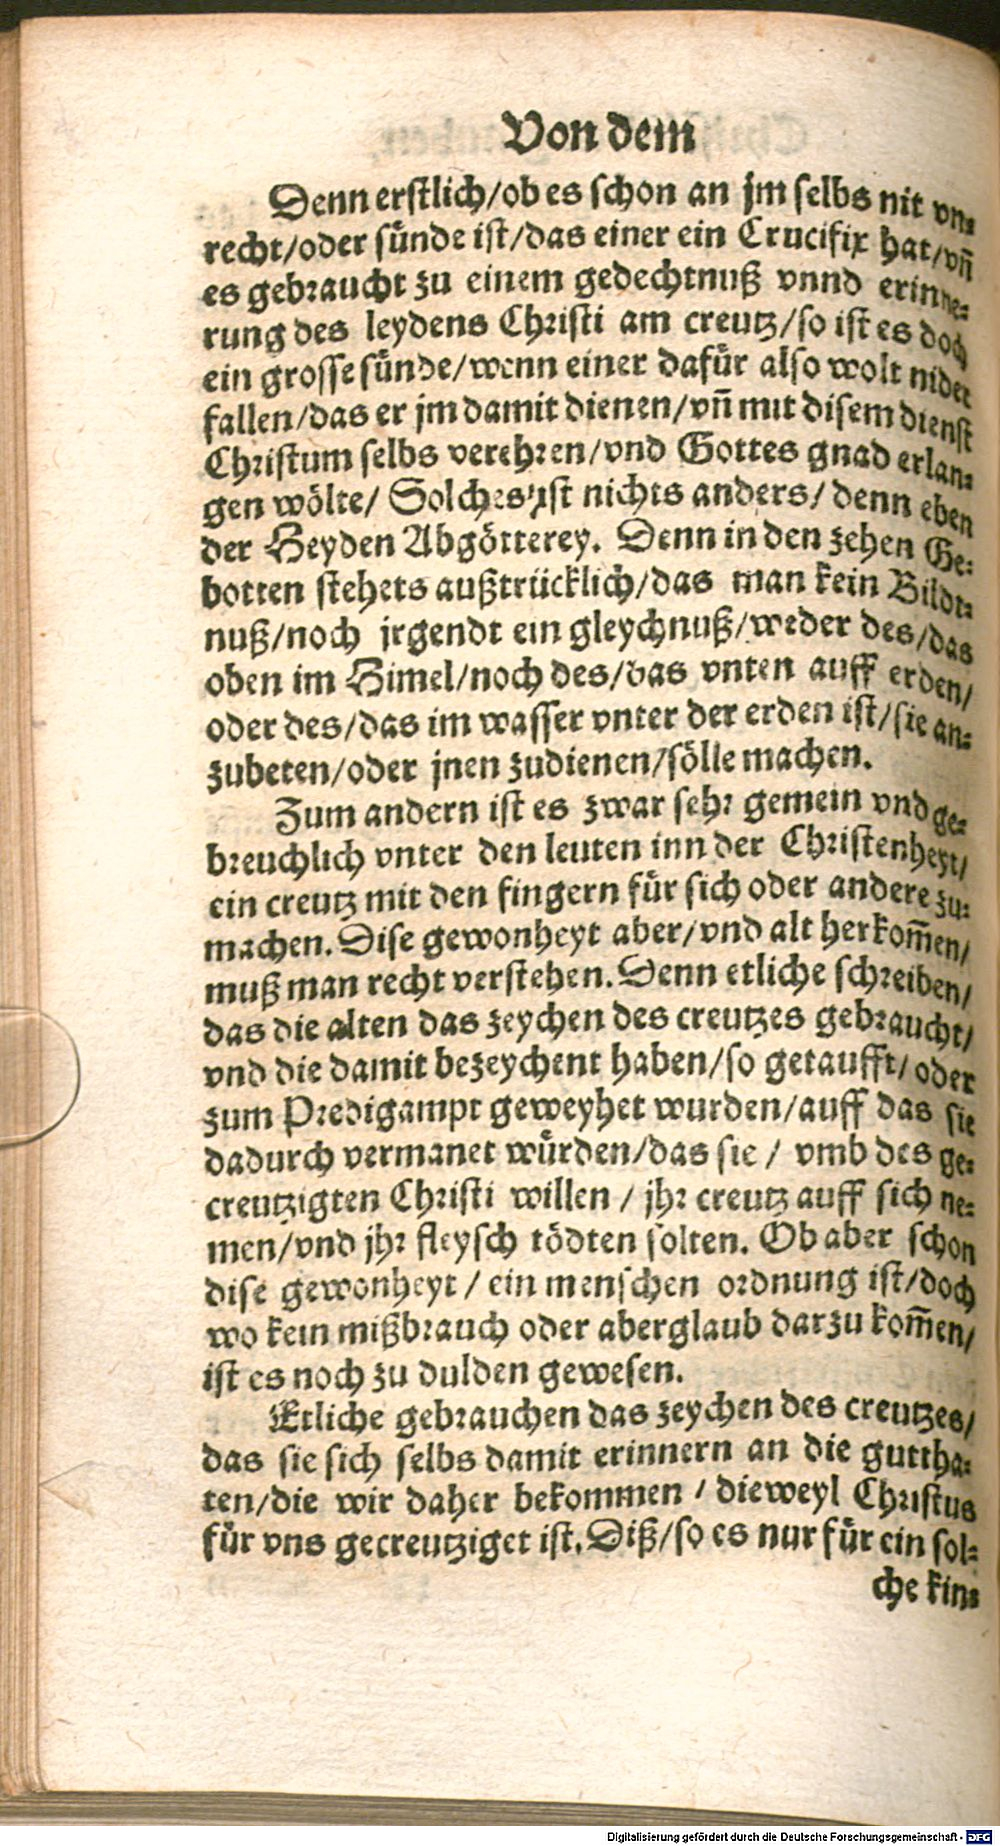 Von dem
Denn erstlich/ob es schon an jm selbs nit vn⸗
recht/oder sünde ist/das einer ein Crucifix hat/vñ
es gebraucht zu einem gedechtnuß vnnd erinne⸗
rung des leydens Christi am creutz/so ist es doch
ein grosse sünde/wenn einer dafür also wolt nider
fallen/das er jm damit dienen/vñ mit disem dienst
Christum selbs verehren/vnd Gottes gnad erlan⸗
gen wölte/ Solches ist nichts anders/ denn eben
der Heyden Abgötterey. Denn in den zehen Ge⸗
botten stehets außtrücklich/das man kein Bildt⸗
nuß/noch jrgendt ein gleychnuß/weder des/das
oben im Himel/noch des/das vnten auff erden/
oder des/das im wasser vnter der erden ist/sie an⸗
zubeten/oder jnen zudienen/sölle machen.
Zum andern ist es zwar sehr gemein vnd ge⸗
breuchlich vnter den leuten inn der Christenheyt/
ein creutz mit den fingern für sich oder andere zu⸗
machen. Dise gewonheyt aber/vnd alt herkom̃en/
muß man recht verstehen. Denn etliche schreiben/
das die alten das zeychen des creutzes gebraucht/
vnd die damit bezeychent haben/so getaufft/ oder
zum Predigampt geweyhet wurden/auff das sie
dadurch vermanet würden/das sie / vmb des ge⸗
creutzigten Christi willen / jhr creutz auff sich ne⸗
men/vnd jhr fleysch tödten solten. Ob aber schon
dise gewonheyt / ein menschen ordnung ist/doch
wo kein mißbrauch oder aberglaub darzu kom̃en/
ist es noch zu dulden gewesen.
Etliche gebrauchen das zeychen des creutzes/
das sie sich selbs damit erinnern an die guttha⸗
ten/die wir daher bekommen / dieweyl Christus
für vns gecreutziget ist. Diß/so es nur für ein sol⸗
che kin⸗
Digitalisierung gefördert durch die Deutsche Forschungsgemeinschaft - DFG